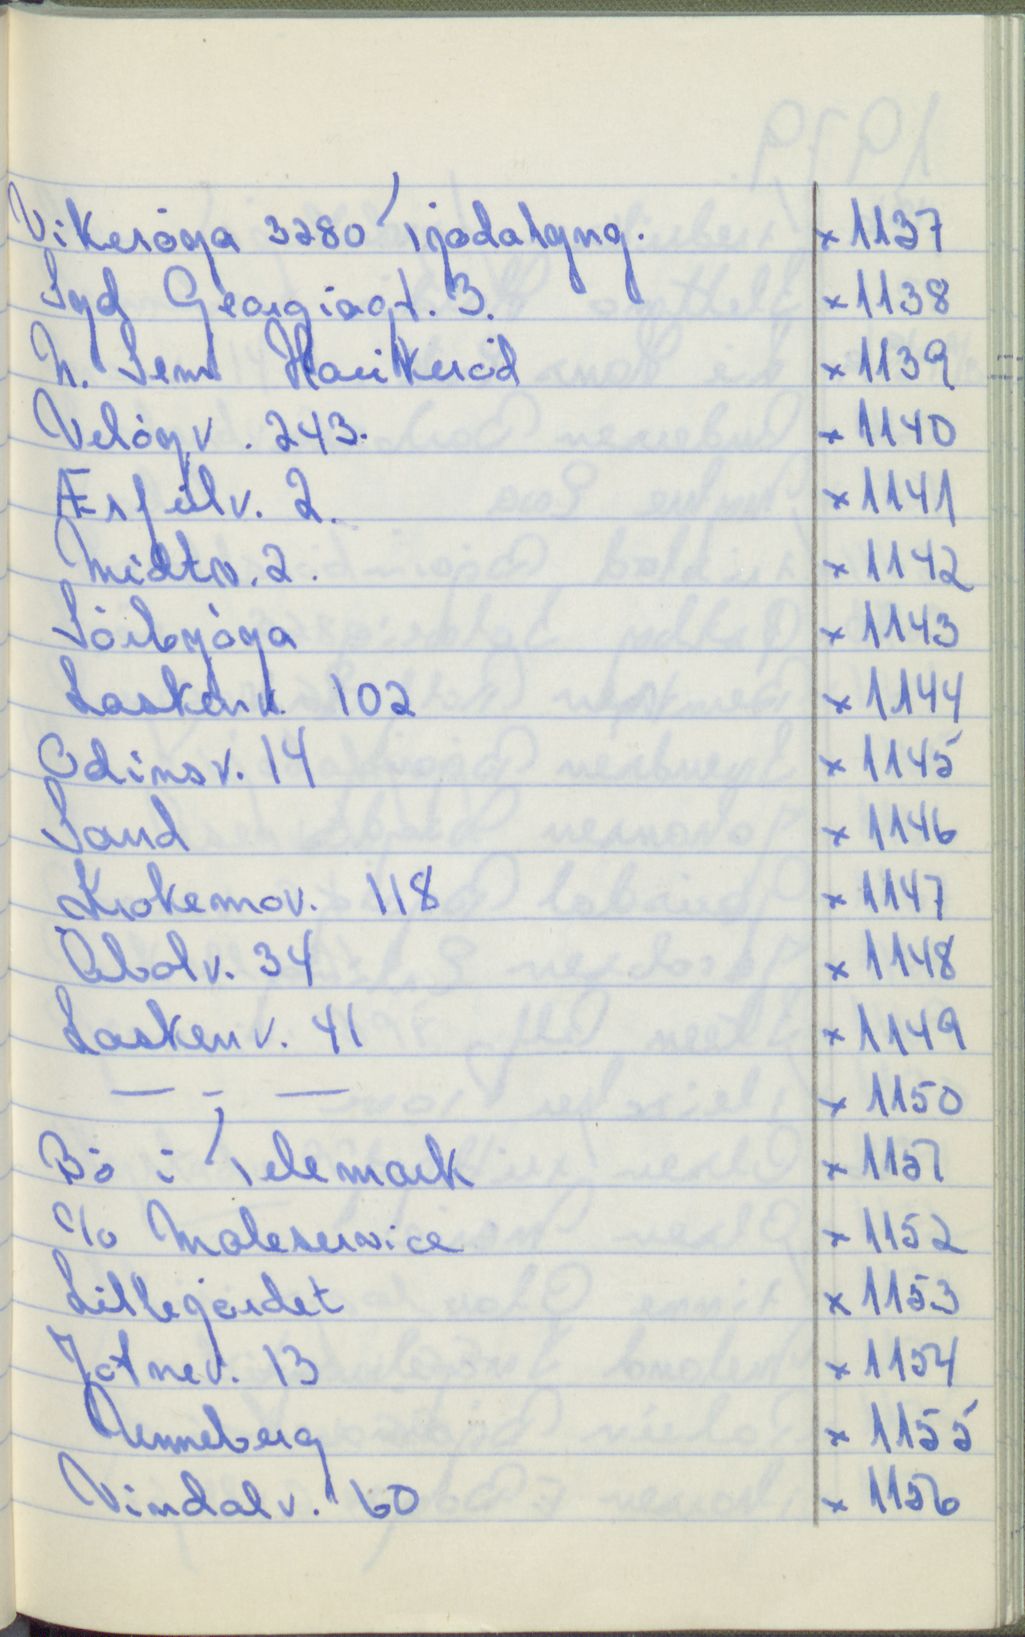 Vikerøya 3280 Tjodalyng. x 1137
Syd Georgiagt. 3. x 1138
N. Sem Haukerød x 1139
Veløyv. 243. x 1140
Ærfulv. 2. x 1141
Midtv. 2. x 1142
Sørbyøya x 1143
Laskenv. 102 x 1144
Odinsv. 14 x 1145
Sand x 1146
Krokemov. 118 x 1147
Abolv. 34 x 1148
Laskenv. 41 x 1149
— - — x 1150
Bø i Telemark x 1151
c/o Maleservice x 1152
Lillegårdet x 1153
Jotnev. 13 x 1154
Unneberg x 1155
Vindalv. 60 x 1156